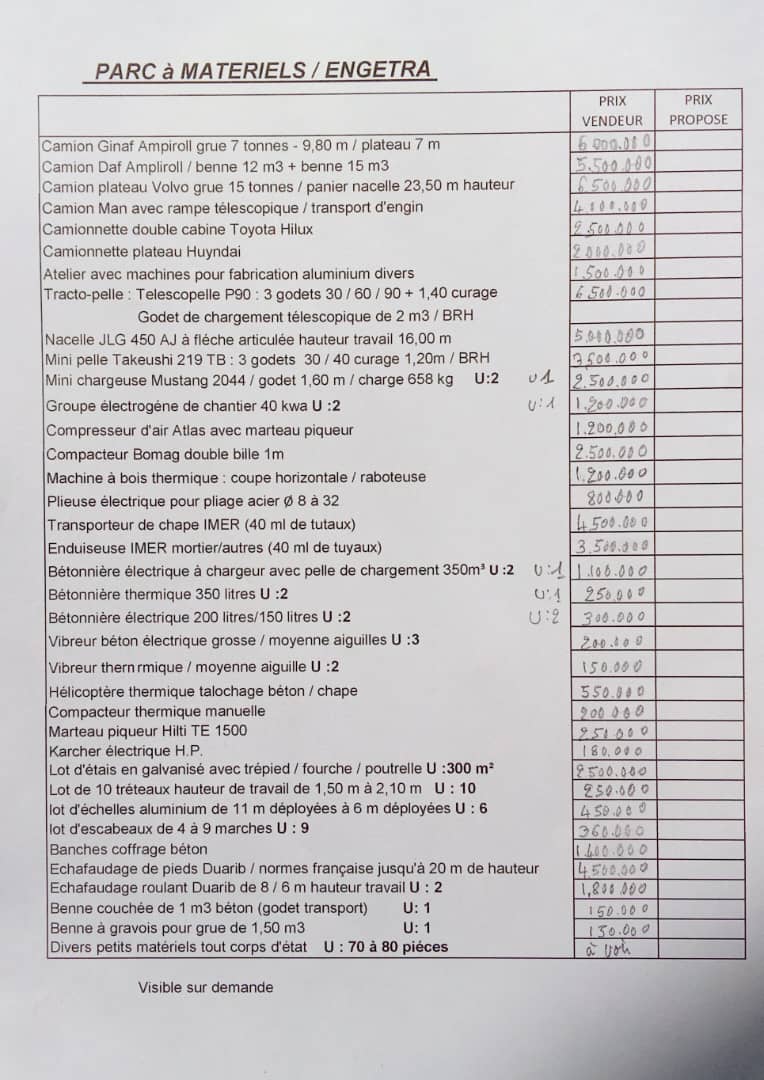 PARC à MATERIELS / ENGETRA
PRIX VENDEUR PRIX PROPOSE
Camion Ginaf Ampiroll grue 7 tonnes - 9,80 m / plateau 7 m 6 000.000
Camion Daf Ampliroll / benne 12 m3 + benne 15 m3 5.500.000
Camion plateau Volvo grue 15 tonnes / panier nacelle 23,50 m hauteur 6 500 000
Camion Man avec rampe télescopique / transport d'engin 4.000.000
Camionnette double cabine Toyota Hilux 2 500.000
Camionnette plateau Huyndai 2 000.000
Atelier avec machines pour fabrication aluminium divers 1.500.000
Tracto-pelle : Telescopelle P90 : 3 godets 30 / 60 / 90 + 1,40 curage 6.500.000
Godet de chargement télescopique de 2 m3 / BRH
Nacelle JLG 450 AJ à fléche articulée hauteur travail 16,00 m 5.000.000
Mini pelle Takeushi 219 TB : 3 godets 30 / 40 curage 1,20m / BRH 3 500.000
Mini chargeuse Mustang 2044 / godet 1,60 m / charge 658 kg U:2 U 1 2.500.000
Groupe électrogéne de chantier 40 kwa U :2 U:1 1.200.000
Compresseur d'air Atlas avec marteau piqueur 1.200.000
Compacteur Bomag double bille 1m 2.500.000
Machine à bois thermique : coupe horizontale / raboteuse 1.200.000
Plieuse électrique pour pliage acier Ø 8 à 32 800.000
Transporteur de chape IMER (40 ml de tutaux) 4 500.000
Enduiseuse IMER mortier/autres (40 ml de tuyaux) 3.500.000
Bétonnière électrique à chargeur avec pelle de chargement 350m³ U :2 U:1 1.100.000
Bétonnière thermique 350 litres U :2 U:1 250.000
Bétonnière électrique 200 litres/150 litres U :2 U:2 300.000
Vibreur béton électrique grosse / moyenne aiguilles U :3 200.000
Vibreur thern rmique / moyenne aiguille U :2 150.000
Hélicoptère thermique talochage béton / chape 550.000
Compacteur thermique manuelle 200 000
Marteau piqueur Hilti TE 1500 250 000
Karcher électrique H.P. 180.000
Lot d'étais en galvanisé avec trépied / fourche / poutrelle U :300 m² 2500.000
Lot de 10 tréteaux hauteur de travail de 1,50 m à 2,10 m U : 10 250.000
lot d'échelles aluminium de 11 m déployées à 6 m déployées U : 6 450.000
lot d'escabeaux de 4 à 9 marches U : 9 360.000
Banches coffrage béton 1.400.000
Echafaudage de pieds Duarib / normes française jusqu'à 20 m de hauteur 4.500.000
Echafaudage roulant Duarib de 8 / 6 m hauteur travail U : 2 1,800 000
Benne couchée de 1 m3 béton (godet transport) U: 1 150.000
Benne à gravois pour grue de 1,50 m3 U: 1 130.000
Divers petits matériels tout corps d'état U : 70 à 80 piéces à voir
Visible sur demande